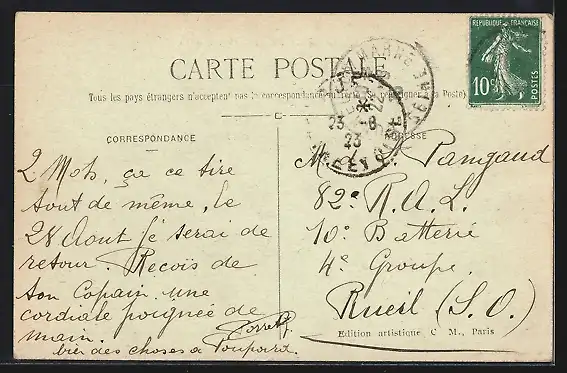 RÉPUBLIQUE FRANÇAISE
10c
POSTES
CARTE POSTALE
Tous les pays étrangers n'acceptent pas la correspondance au recto. Se renseigner à la Poste).
CORRESPONDANCE
2 Mots, ça ce tire
tout de même, le
28 Aout je serai de
retour. Recois de
ton Copain une
cordiale poignée de
main.
bien des choses a Poupard.
ADRESSE
M. Pangaud
82e R.A.L.
10e Batterie
4e Groupe
Rueil (S. O.)
23 -8
23
MARNE
Edition artistique C M., Paris